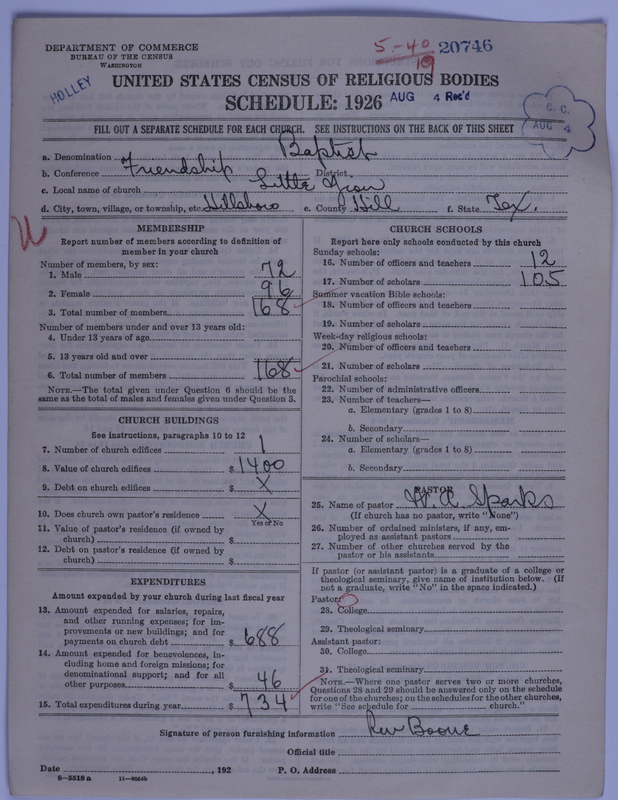 DEPARTMENT OF COMMERCE
BUREAU OF THE CENSUS
WASHINGTON
5-40
19
20746
HOLLEY
UNITED STATES CENSUS OF RELIGIOUS BODIES
SCHEDULE: 1926
AUG 4 Rec'd
C. C.
AUG 4
FILL OUT A SEPARATE SCHEDULE FOR EACH CHURCH. SEE INSTRUCTIONS ON THE BACK OF THIS SHEET
a. Denomination Baptist
b. Conference Friendship District
c. Local name of church Little Zion
d. City, town, village, or township, etc. Hillsboro e. County Hill f. State Tex.
MEMBERSHIP
Report number of members according to definition of
member in your church
Number of members, by sex:
1. Male 72
2. Female 96
3. Total number of members 168
Number of members under and over 13 years old:
4. Under 13 years of age
5. 13 years old and over
6. Total number of members 168
NOTE.—The total given under Question 6 should be the
same as the total of males and females given under Question 3.
CHURCH BUILDINGS
See instructions, paragraphs 10 to 12
7. Number of church edifices 1
8. Value of church edifices $1400
9. Debt on church edifices $ X
10. Does church own pastor's residence X
Yes or No
11. Value of pastor's residence (if owned by
church) $
12. Debt on pastor's residence (if owned by
church) $
EXPENDITURES
Amount expended by your church during last fiscal year
13. Amount expended for salaries, repairs,
and other running expenses; for im-
provements or new buildings; and for
payments on church debt $ 688
14. Amount expended for benevolences, in-
cluding home and foreign missions; for
denominational support; and for all
other purposes $ 46
15. Total expenditures during year $ 734
CHURCH SCHOOLS
Report here only schools conducted by this church
Sunday schools:
16. Number of officers and teachers 12
17. Number of scholars 105
Summer vacation Bible schools:
18. Number of officers and teachers
19. Number of scholars
Week-day religious schools:
20. Number of officers and teachers
21. Number of scholars
Parochial schools:
22. Number of administrative officers
23. Number of teachers—
a. Elementary (grades 1 to 8)
b. Secondary
24. Number of scholars—
a. Elementary (grades 1 to 8)
b. Secondary
PASTOR
25. Name of pastor Sparks
(If church has no pastor, write "None")
26. Number of ordained ministers, if any, em-
ployed as assistant pastors
27. Number of other churches served by the
pastor or his assistants
If pastor (or assistant pastor) is a graduate of a college or
theological seminary, give name of institution below. (If
not a graduate, write "No" in the space indicated.)
Pastor:
28. College
29. Theological seminary
Assistant pastor:
30. College
31. Theological seminary
NOTE.—Where one pastor serves two or more churches,
Questions 28 and 29 should be answered only on the schedule
for one of the churches; on the schedules for the other churches,
write "See schedule for church."
Signature of person furnishing information Rev Boone
Official title
Date , 192 P. O. Address
8-5518 a